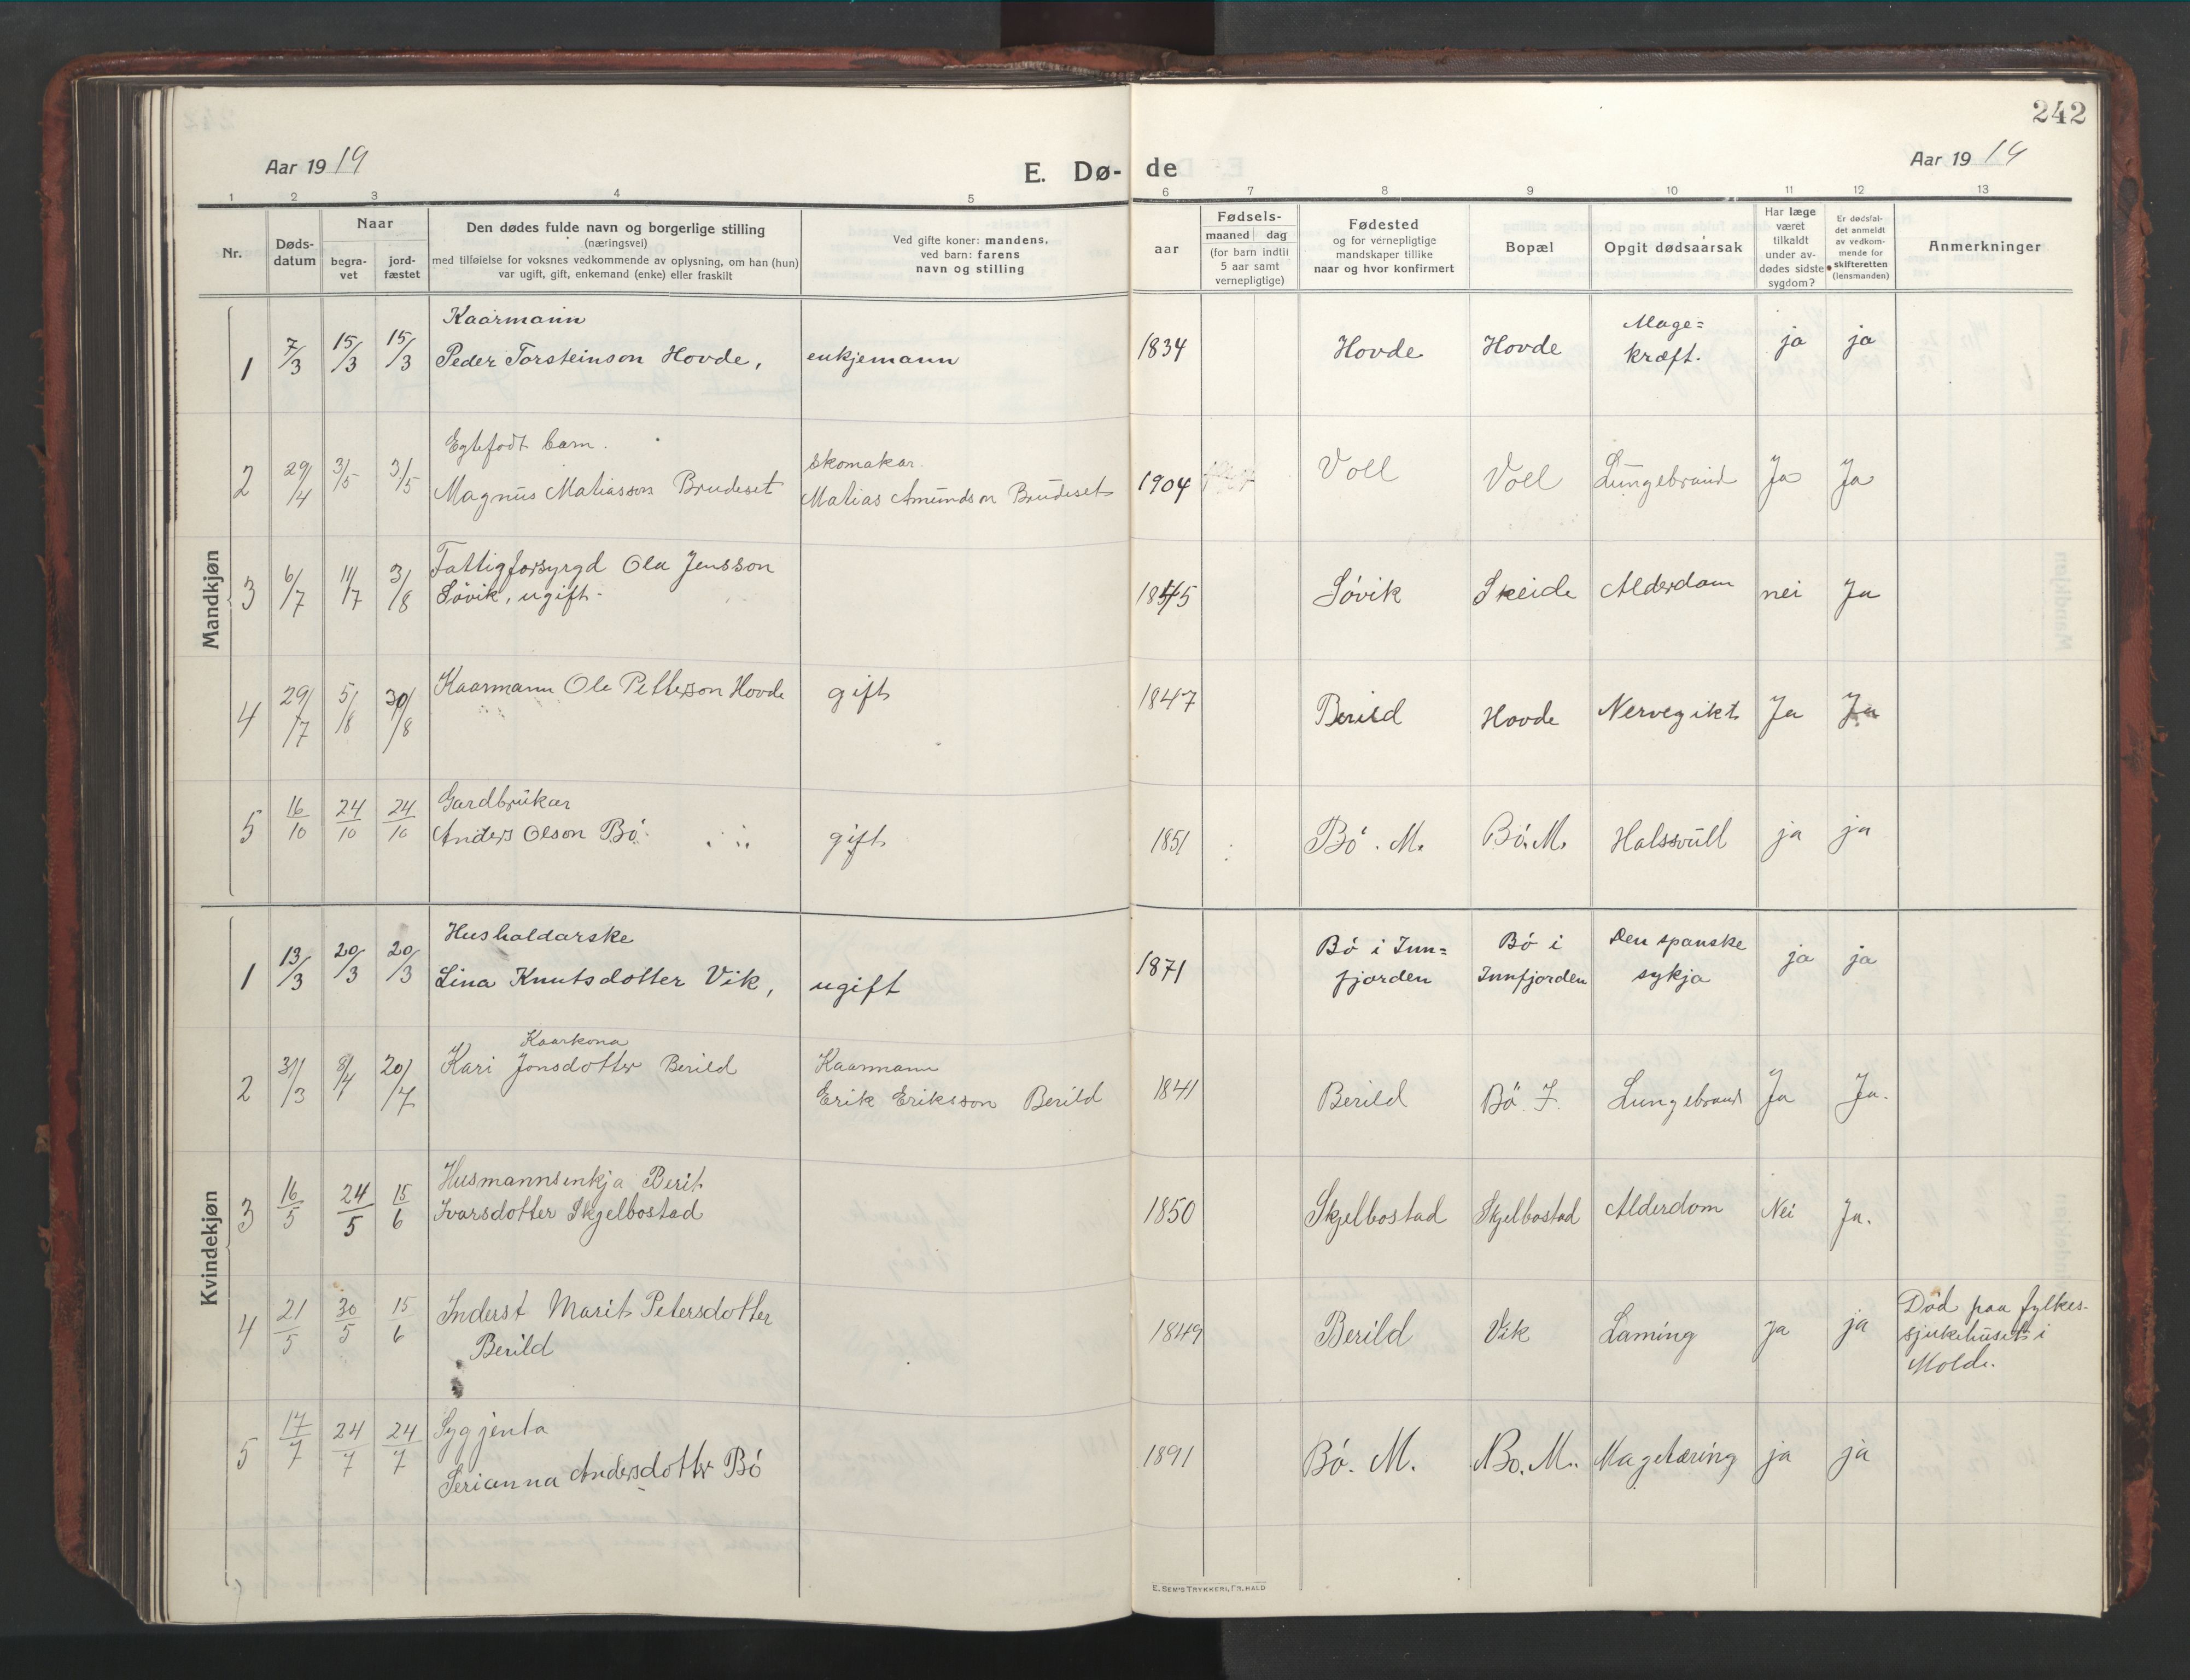 242
Aar 1919
E. Dø-de
Aar 1919
1 2 3 4 5 6 7 8 9 10 11 12 13
Nr.
Døds-
datum
Naar
begra-
vet
jord-
fæstet
Den dødes fulde navn og borgerlige stilling
(næringsvei)
med tilføielse for voksnes vedkommende av oplysning, om han (hun)
var ugift, gift, enkemand (enke) eller fraskilt
Ved gifte koner: mandens,
ved barn: farens
navn og stilling
aar
Fødsels-
maaned dag
(for barn indtil
5 aar samt
vernepligtige)
Fødested
og for vernepligtige
mandskaper tillike
naar og hvor konfirmert
Bopæl
Opgit dødsaarsak
Har læge
været
tilkaldt
under av-
dødes sidste
sygdom?
Er dødsfal-
det anmeldt
av vedkom-
mende for
skifteretten
(lensmanden)
Anmerkninger
Mandkjøn
Kaarmann
1 7/3 15/3 15/3 Peder Torsteinson Hovde, enkjemann 1834 Hovde Hovde Mage=
kræft. ja ja
Egtefødt barn.
2 29/4 3/5 3/5 Magnus Matiasson Brudeset Skomakar
Matias Amundson Brudeset 1904 Voll Voll Lungebrand Ja Ja
3 6/7 11/7 3/8 Fattigforsyrgd Ola Jensson
Søvik, ugift- 1845 Søvik Skeide Alderdom nei Ja
4 29/7 5/8 30/8 Kaarmann Ole Petterson Hovde gift 1847 Berild Hovde Nervegikt Ja Ja
Gardbrukar
5 16/10 24/10 24/10 Anders Olson Bö. gift 1851 Bö. M. Bö. M. Halssvull ja ja
Kvindekjøn
Hushaldarske
1 13/3 20/3 20/3 Lina Knutsdotter Vik, ugift 1871 Bö i Inn=
fjorden Bö i
Innfjorden Den spanske
sykja ja ja
Kaarkona
2 31/3 8/4 20/7 Kari Jonsdotter Berild Kaarmann
Erik Eriksson Berild 1841 Berild Bö I. Lungebrand Ja Ja.
3 16/5 24/5 15/6 Husmannsenkja Berit
Ivarsdotter Skjelbostad 1850 Skjelbostad Skjelbostad Alderdom Nei Ja.
4 21/5 30/5 15/6 Inderst Marit Petersdotter
Berild 1849 Berild Vik Laming Ja ja Död paa fylkes-
sjukehuset i
Molde.
5 17/7 24/7 24/7 Sygjenta
Serianna Andersdotter Bö 1891 Bö. M. Bö. M. Magetæring ja ja
E. SEM'S TRYKKERI, FR.HALD